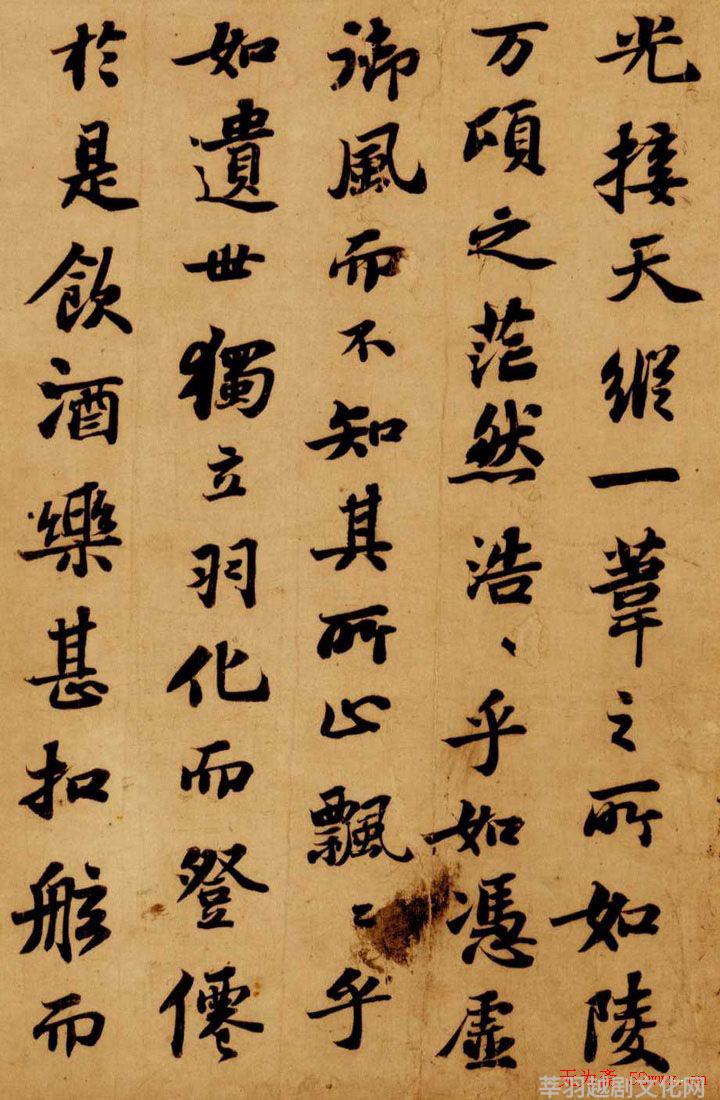 光接天縱一葦之所如陵
万頃之茫然浩、乎如憑虛
御風而不知其所止飄〻乎
如遺世獨立羽化而登僊
於是飲酒樂甚扣舷而
莘羽越剧文化网